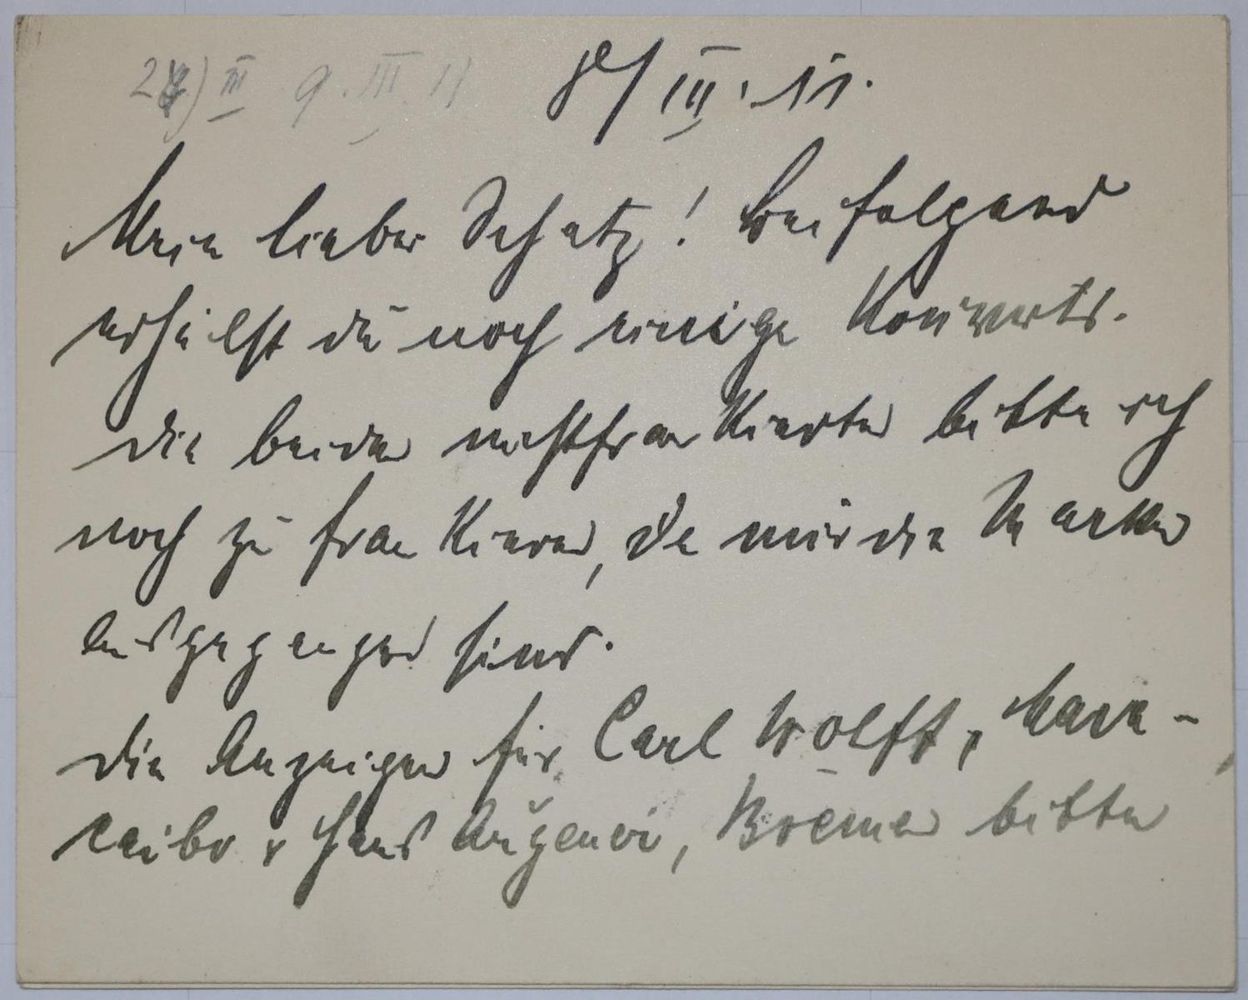 24) III 9. III. 11
8/III. 11.
Mein lieber Schatz! Beifolgend
erhälst du noch einige Kouverts.
Die beiden nichtfrankierten bitte ich
noch zu frankieren, da mir die Marken
ausgegangen sind.
Die Anzeigen für Carl Wolff, Mara-
caibo & Hans, Bremen bitte